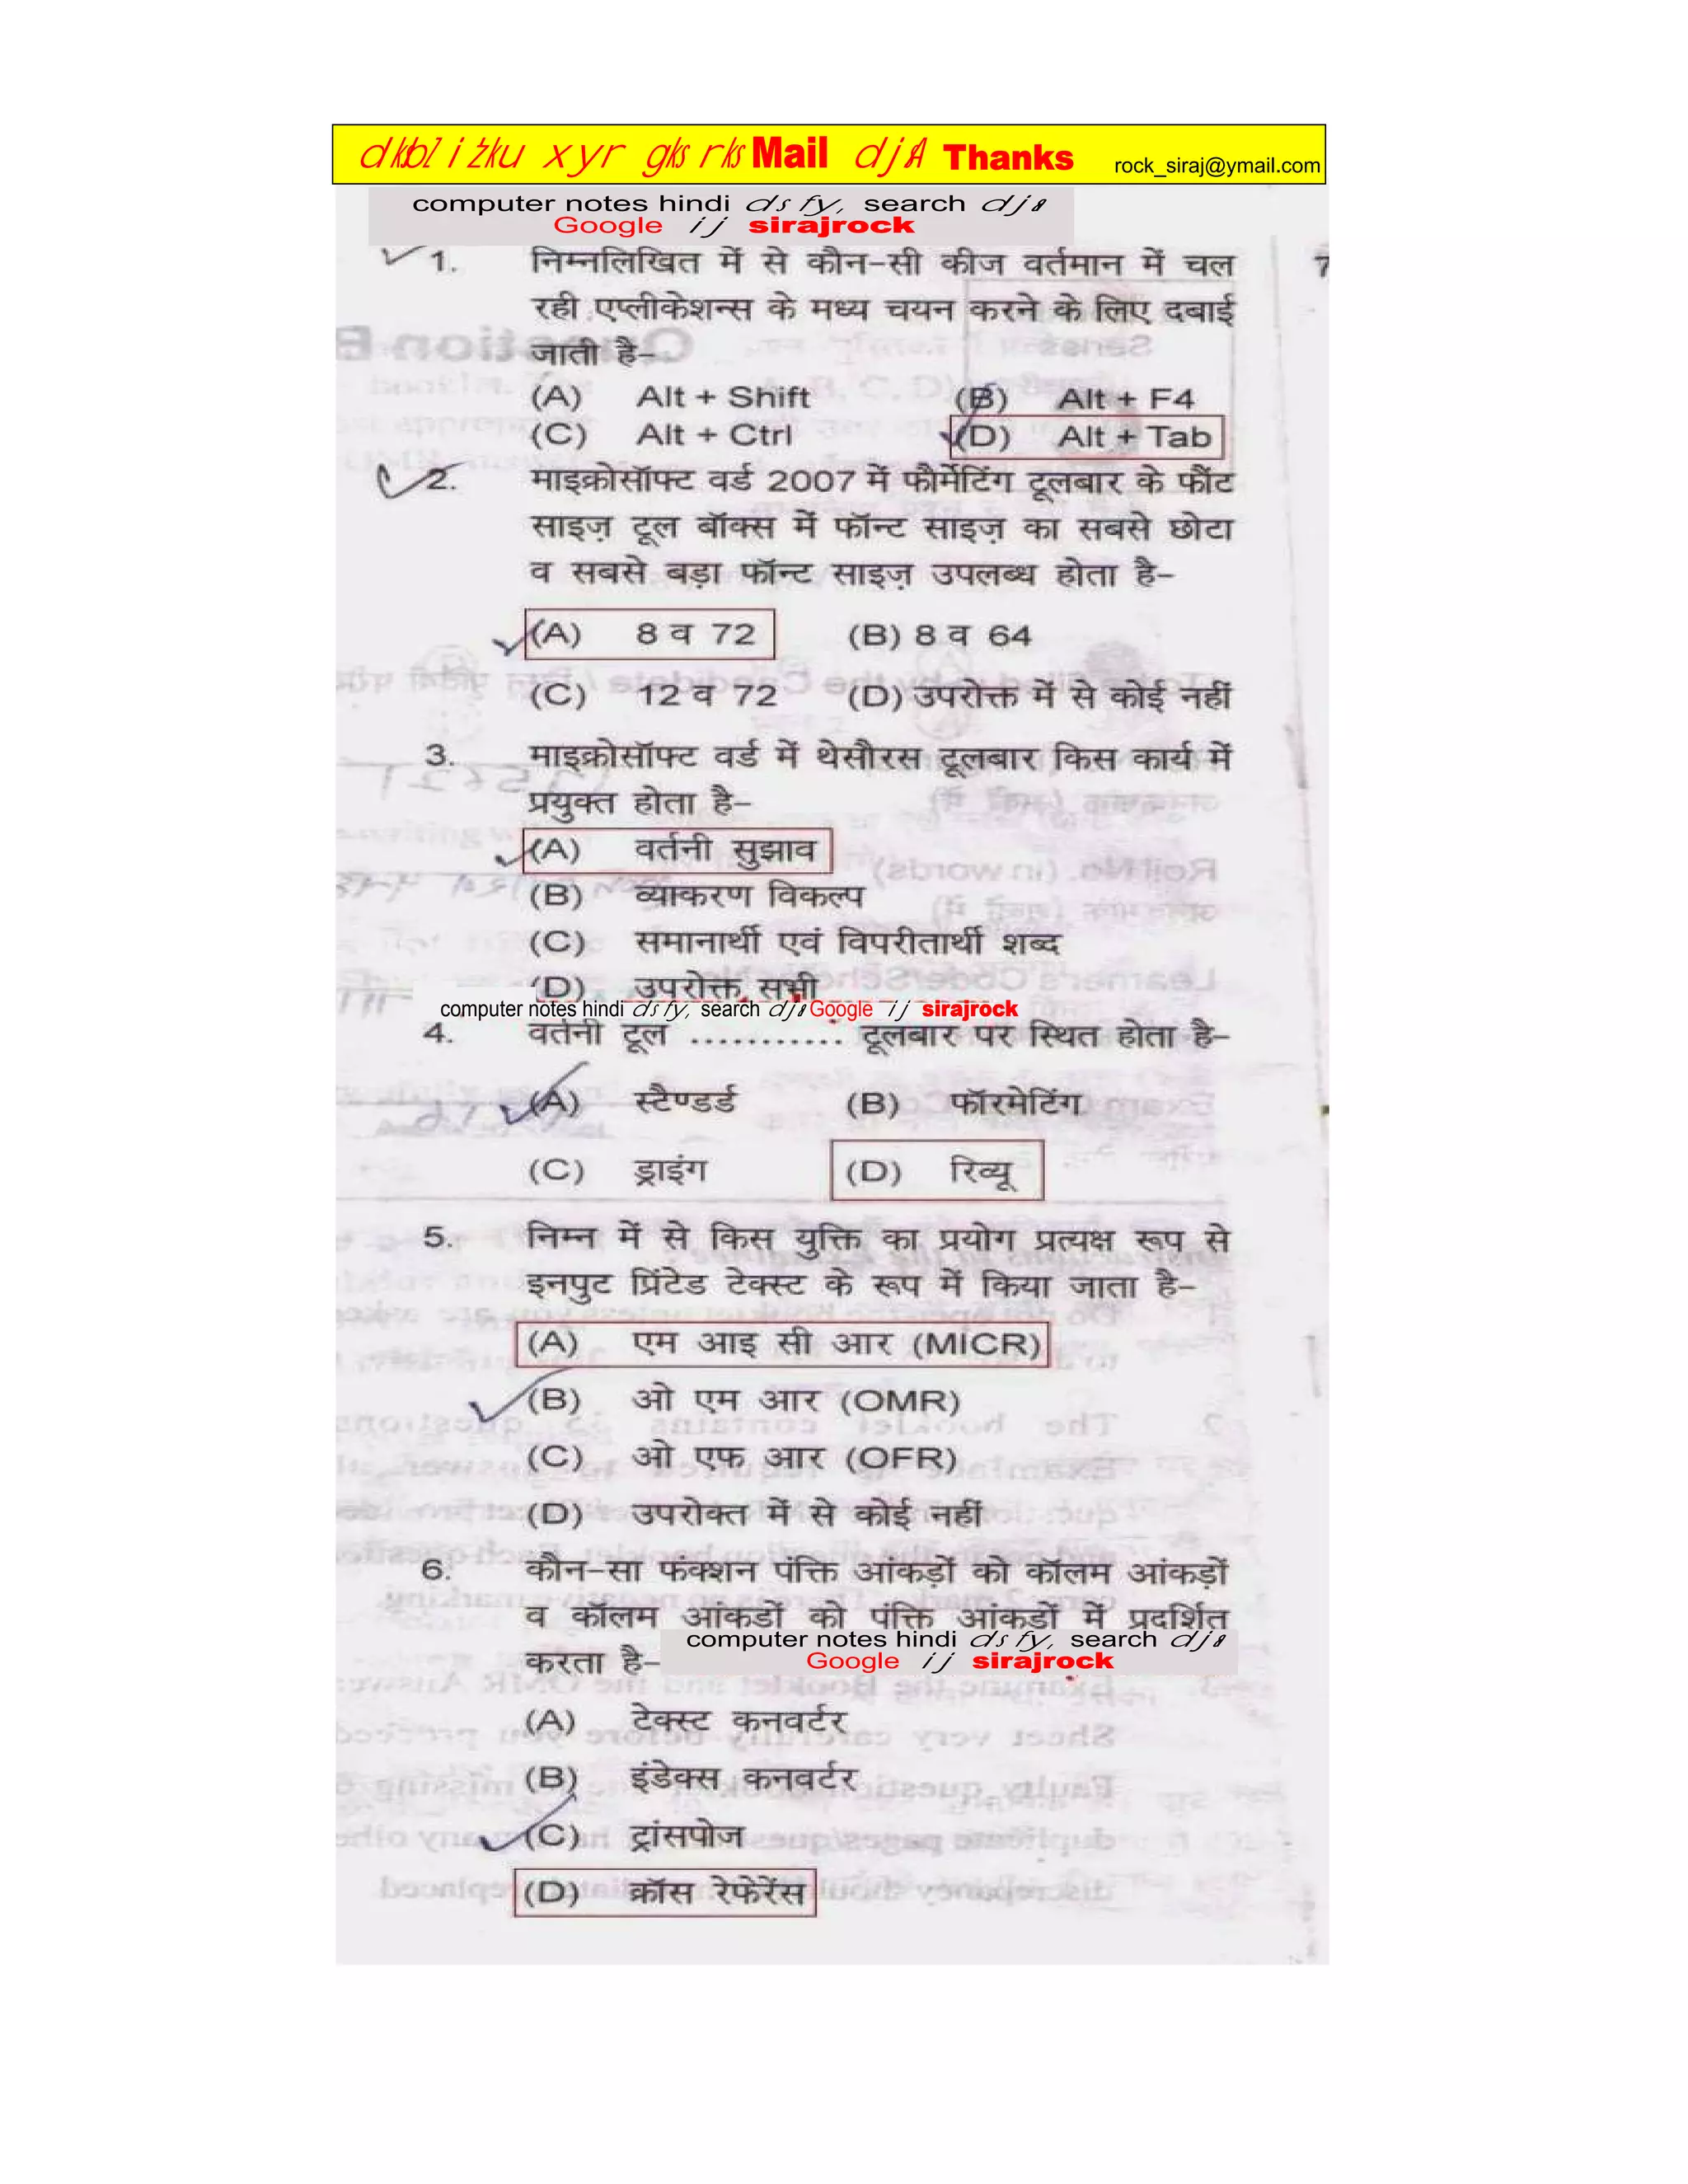 dkbZ iz'u xyr gks rks Mail djsA Thanks rock_siraj@ymail.com
computer notes hindi ds fy, search djs
Google ij sirajrock
1. निम्नलिखित में से कौन-सी कीज वर्तमान में चल
रही एप्लीकेशन्स के मध्य चयन करने के लिए दबाई
जाती है-
(A) Alt + Shift (B) Alt + F4
(C) Alt + Ctrl (D) Alt + Tab
2. माइक्रोसॉफ्ट वर्ड 2007 में फौर्मेटिंग टूलबार के फौंट
साइज़ टूल बॉक्स में फॉन्ट साइज़ का सबसे छोटा
व सबसे बड़ा फॉन्ट साइज़ उपलब्ध होता है-
(A) 8 व 72 (B) 8 व 64
(C) 12 व 72 (D) उपरोक्त में से कोई नहीं
3. माइक्रोसॉफ्ट वर्ड में थेसौरस टूलबार किस कार्य में
प्रयुक्त होता है-
(A) वर्तनी सुझाव
(B) व्याकरण विकल्प
(C) समानार्थी एवं विपरीतार्थी शब्द
(D) उपरोक्त सभी
computer notes hindi ds fy, search djs Google ij sirajrock
4. वर्तनी टूल ........... टूलबार पर स्थित होता है-
(A) स्टैण्डर्ड (B) फॉरमेटिंग
(C) ड्राइंग (D) रिव्यू
5. निम्न में से किस युक्ति का प्रयोग प्रत्यक्ष रूप से
इनपुट प्रिंटेड टेक्स्ट के रूप में किया जाता है-
(A) एम आइ सी आर (MICR)
(B) ओ एम आर (OMR)
(C) ओ एफ आर (OFR)
(D) उपरोक्त में से कोई नहीं
6. कौन-सा फंक्शन पंक्ति आंकड़ों को कॉलम आंकड़ों
व कॉलम आंकडों को पंक्ति आंकडों में प्रदर्शित
करता है-
computer notes hindi ds fy, search djs
Google ij sirajrock
(A) टेक्स्ट कनवर्टर
(B) इंडेक्स कनवर्टर
(C) ट्रांसपोज
(D) क्रॉस रेफेरेंस